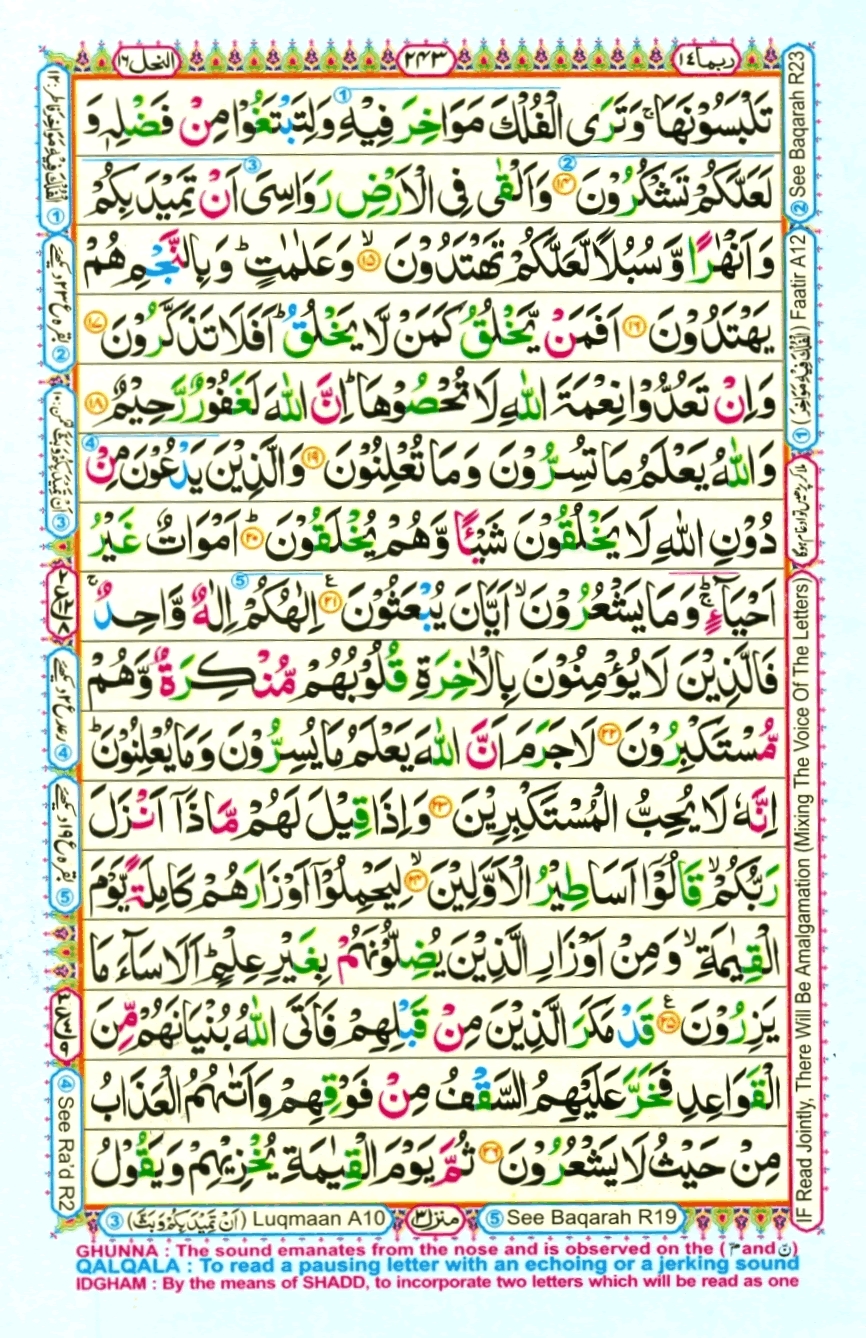 ربما ١٤
٢٤٣
النحل ١٦
تَلْبَسُوْنَهَا ۚ وَتَرَى الْفُلْكَ مَوَاخِرَ فِيْهِ وَلِتَبْتَغُوْا مِنْ فَضْلِهٖ وَ
لَعَلَّكُمْ تَشْكُرُوْنَ ﴿۱۴﴾ وَاَلْقٰى فِى الْاَرْضِ رَوَاسِىَ اَنْ تَمِيْدَ بِكُمْ
وَاَنْهٰرًا وَّسُبُلًا لَّعَلَّكُمْ تَهْتَدُوْنَ ۙ﴿۱۵﴾ وَعَلٰمٰتٍ ؕ وَبِالنَّجْمِ هُمْ
يَهْتَدُوْنَ ﴿۱۶﴾ اَفَمَنْ يَّخْلُقُ كَمَنْ لَّا يَخْلُقُ ؕ اَفَلَا تَذَكَّرُوْنَ ﴿۱۷﴾
وَاِنْ تَعُدُّوْا نِعْمَةَ اللّٰهِ لَا تُحْصُوْهَا ؕ اِنَّ اللّٰهَ لَغَفُوْرٌ رَّحِيْمٌ ﴿۱۸﴾
وَاللّٰهُ يَعْلَمُ مَا تُسِرُّوْنَ وَمَا تُعْلِنُوْنَ ﴿۱۹﴾ وَالَّذِيْنَ يَدْعُوْنَ مِنْ
دُوْنِ اللّٰهِ لَا يَخْلُقُوْنَ شَيْـًٔا وَّهُمْ يُخْلَقُوْنَ ؕ﴿۲۰﴾ اَمْوَاتٌ غَيْرُ
اَحْيَآءٍ ۚ وَمَا يَشْعُرُوْنَ ۙ اَيَّانَ يُبْعَثُوْنَ ﴿۲۱﴾ اِلٰهُكُمْ اِلٰهٌ وَّاحِدٌ ۚ
فَالَّذِيْنَ لَا يُؤْمِنُوْنَ بِالْاٰخِرَةِ قُلُوْبُهُمْ مُّنْكِرَةٌ وَّهُمْ
مُّسْتَكْبِرُوْنَ ﴿۲۲﴾ لَا جَرَمَ اَنَّ اللّٰهَ يَعْلَمُ مَا يُسِرُّوْنَ وَمَا يُعْلِنُوْنَ ؕ
اِنَّهٗ لَا يُحِبُّ الْمُسْتَكْبِرِيْنَ ﴿۲۳﴾ وَاِذَا قِيْلَ لَهُمْ مَّاذَاۤ اَنْزَلَ
رَبُّكُمْ ۙ قَالُوْۤا اَسَاطِيْرُ الْاَوَّلِيْنَ ۙ﴿۲۴﴾ لِيَحْمِلُوْۤا اَوْزَارَهُمْ كَامِلَةً يَّوْمَ
الْقِيٰمَةِ ۙ وَمِنْ اَوْزَارِ الَّذِيْنَ يُضِلُّوْنَهُمْ بِغَيْرِ عِلْمٍ ؕ اَلَا سَآءَ مَا
يَزِرُوْنَ ﴿۲۵﴾ قَدْ مَكَرَ الَّذِيْنَ مِنْ قَبْلِهِمْ فَاَتَى اللّٰهُ بُنْيَانَهُمْ مِّنَ
الْقَوَاعِدِ فَخَرَّ عَلَيْهِمُ السَّقْفُ مِنْ فَوْقِهِمْ وَاَتٰٮهُمُ الْعَذَابُ
مِنْ حَيْثُ لَا يَشْعُرُوْنَ ﴿۲۶﴾ ثُمَّ يَوْمَ الْقِيٰمَةِ يُخْزِيْهِمْ وَيَقُوْلُ
② See Baqarah R23
① (الْفُلْكَ فِيْهِ مَوَاخِرَ) Faatir A12
IF Read Jointly, There Will Be Amalgamation (Mixing The Voice Of The Letters)
④ See Ra'd R2
③ (اَنْ تَمِيْدَ بِكُمْ وَبَثَّ) Luqmaan A10
منزل ٣
⑤ See Baqarah R19
GHUNNA : The sound emanates from the nose and is observed on the ( مّ and نّ )
QALQALA : To read a pausing letter with an echoing or a jerking sound
IDGHAM : By the means of SHADD, to incorporate two letters which will be read as one